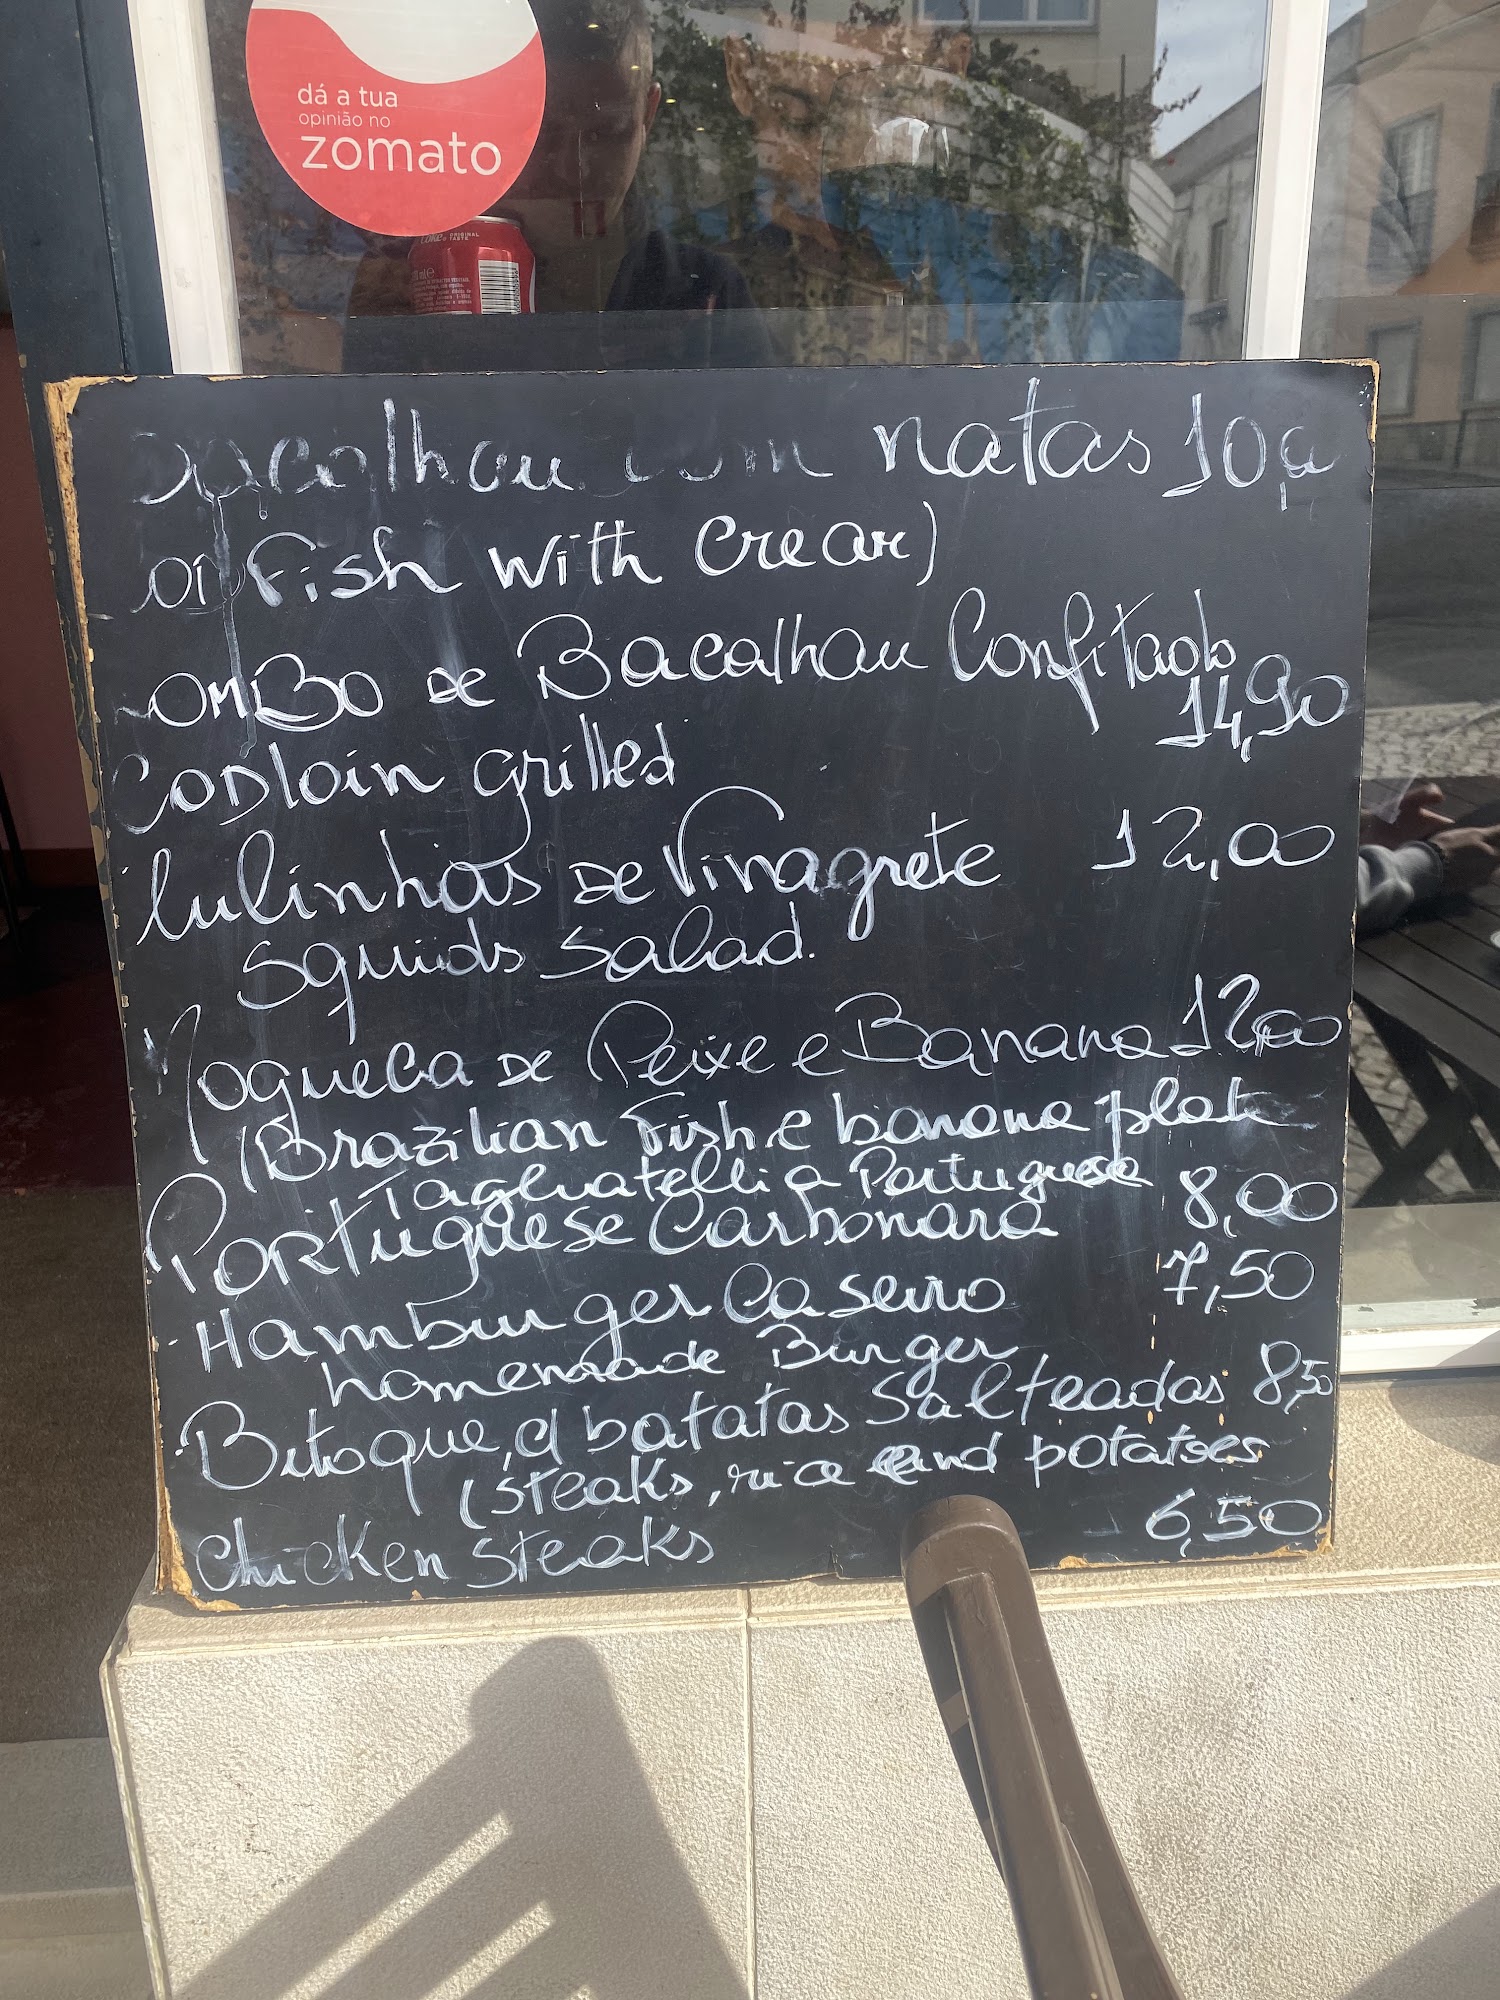 dá a tua
opinião no
zomato
COKE ORIGINAL TASTE
Bacalhau com natas
Fish with Cream)
LOMBO DE Bacalhau Confitado
14,90
CODLOIN grilled
Lulinhas DE Vinagrete 12,00
Squids Salad.
Moqueca DE Peixe e Banana 12,00
(Brazilian Fish e banana plate
Tagliatelli a Portuguesa 8,00
PORTuguese Carbonara
Hamburger Caseiro 7,50
homemade Burger
Bitoque, c/ batatas Salteadas 8,50
(steaks, rice and potatoes
Chicken Steaks 6,50